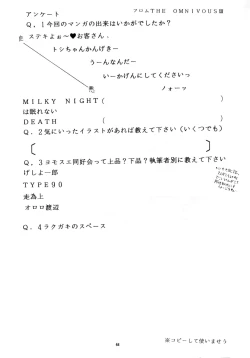 アンケート
フロムTHE OMNIVOUS篇
Q．1今回のマンガの出来はいかがでしたか？
ステキよぉ～♥お客さん．
トシちゃんかんげきー
うーんなんだー
いーかげんにしてくださいっ
ノォーッ
MILKY NIGHT(　　　)
は眠れない
DEATH (　　　)
Q．2気にいったイラストがあれば教えて下さい（いくつでも）
〔　　　〕
Q．3ヨモスエ同好会って上品？下品？執筆者別に教えて下さい
げしよ一郎
TYPE90
走為上
オロロ渡辺
Q．4ラクガキのスペース
※コピーして使いませう